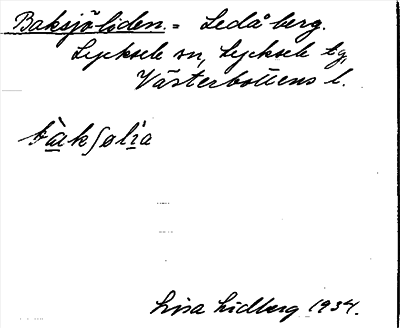 Baksjöliden. = Ledåberg.
Lycksele sn, Lycksele tg,
Västerbottens l.
bàkʃølìa
Lisa Lidberg 1934.